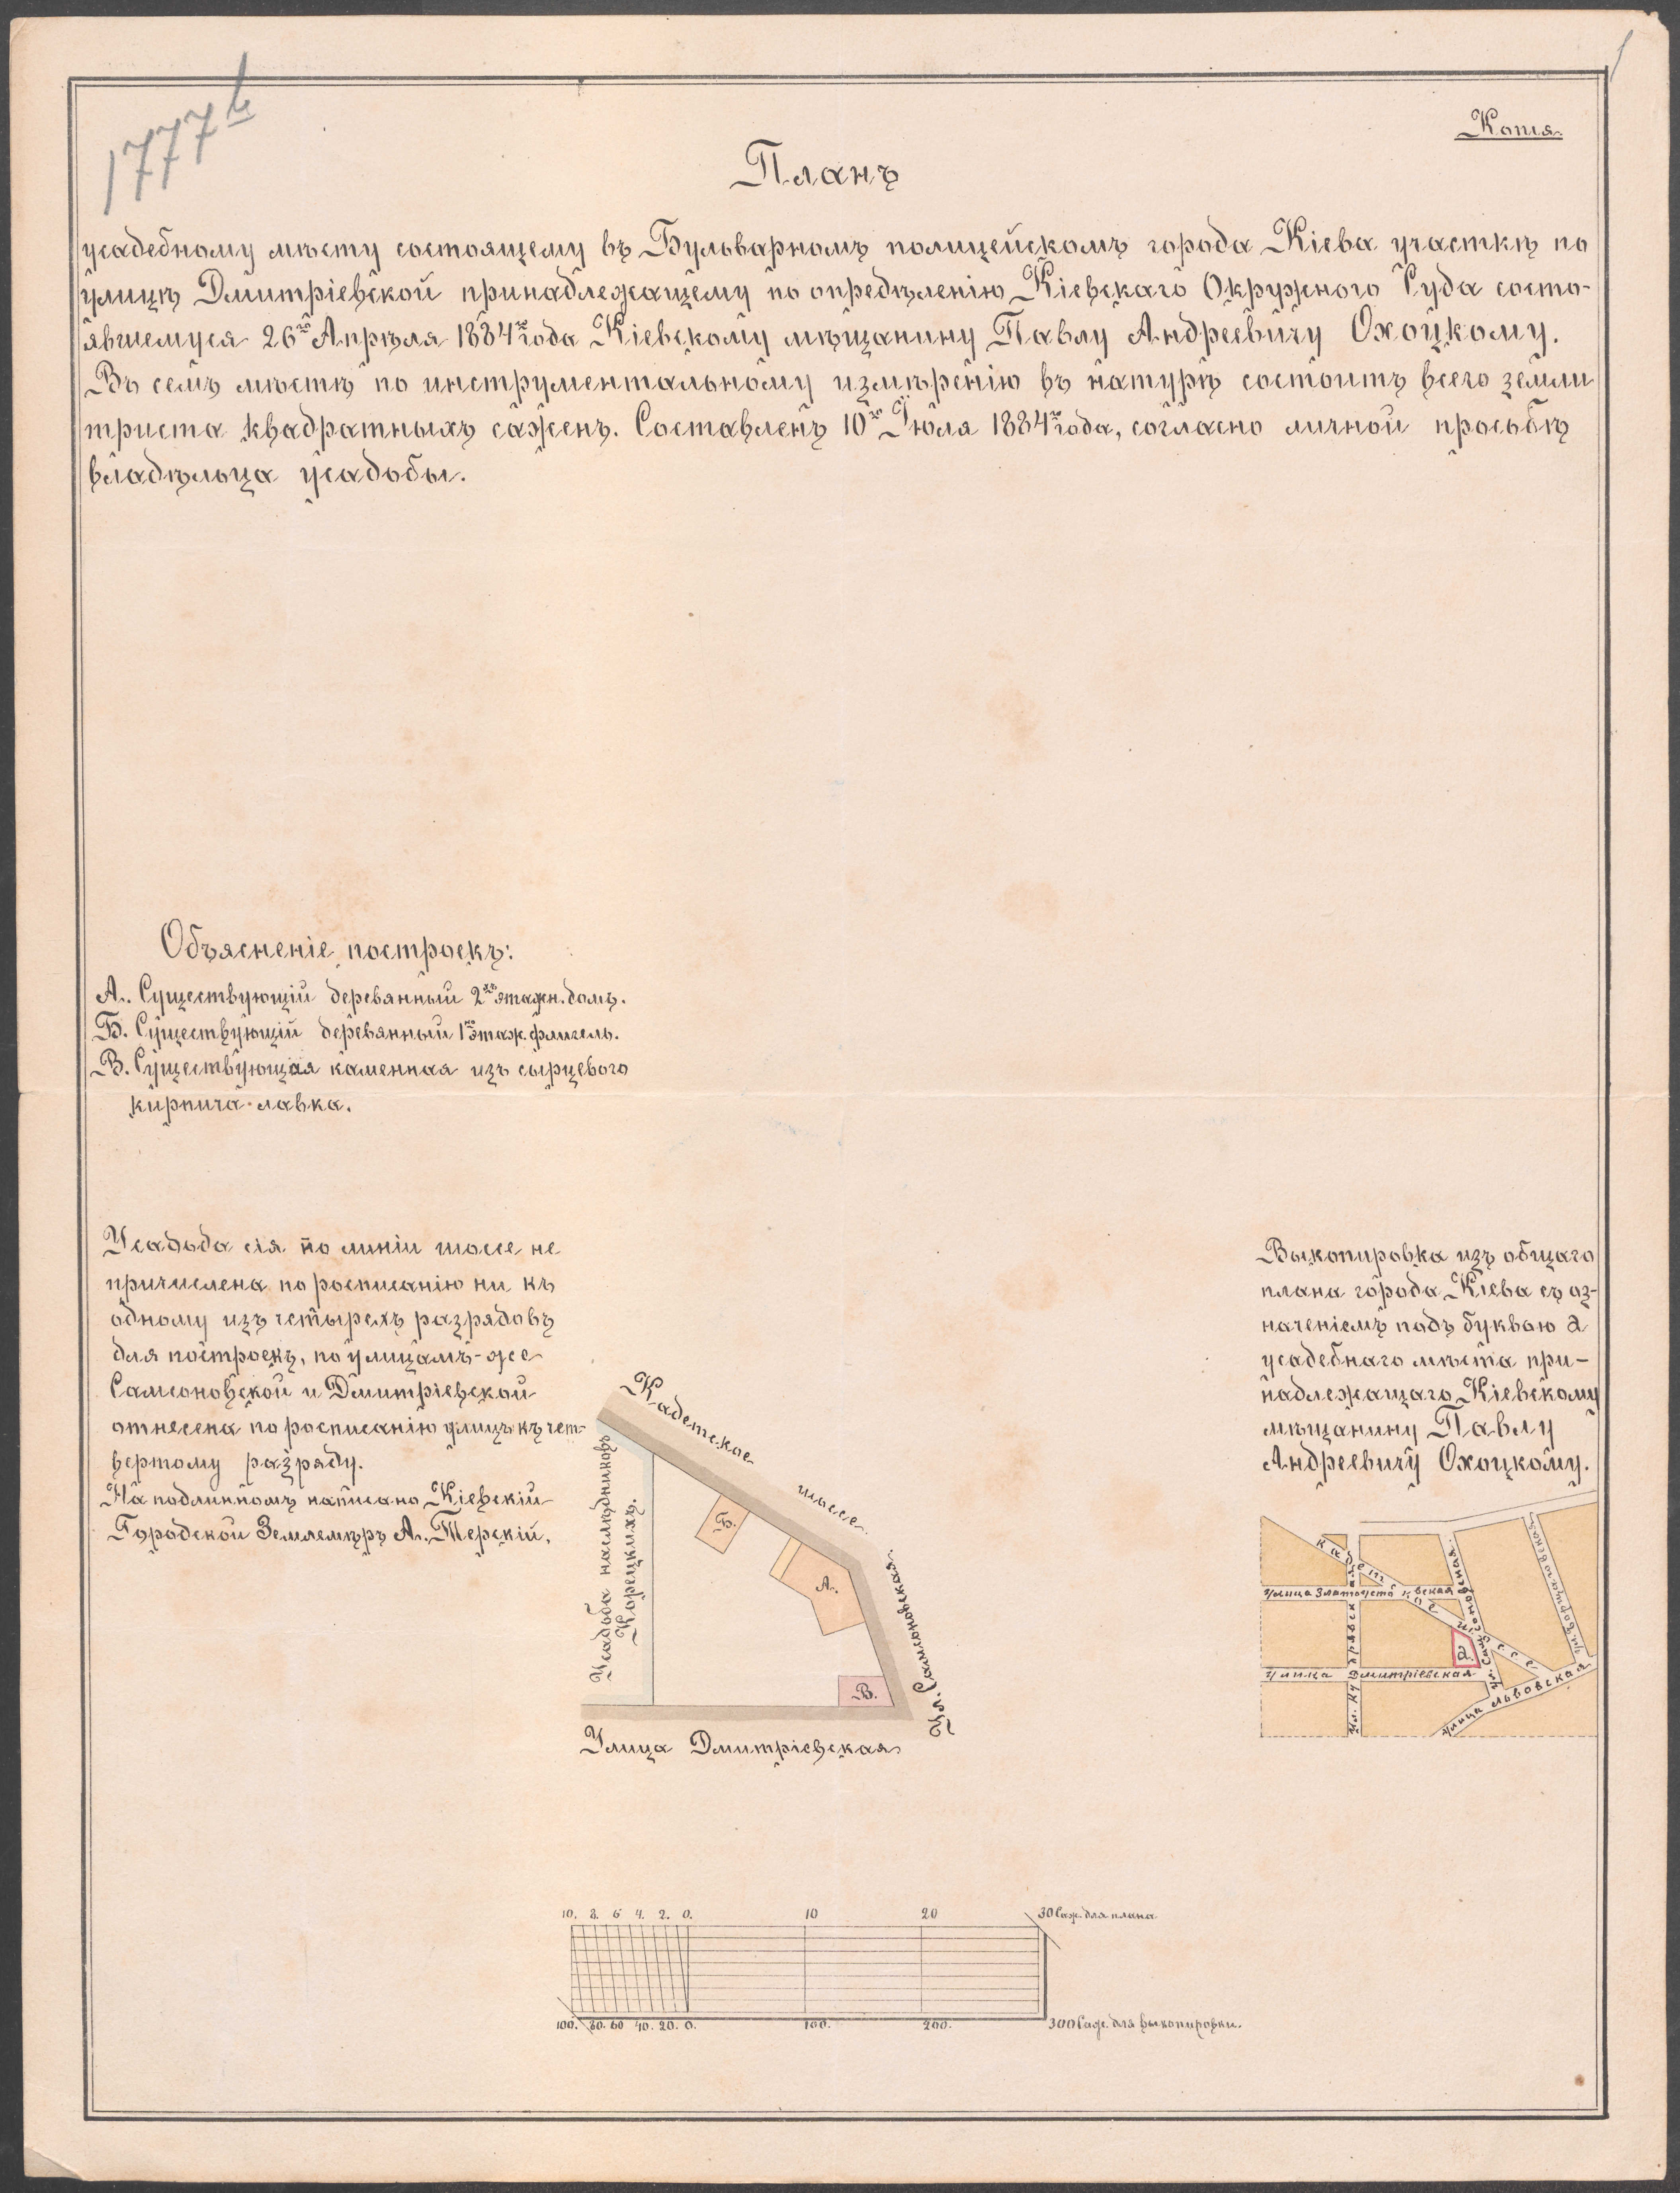 1777 b
Копія
Планъ
усадебному мѣсту состоящему въ Бульварномъ полицейскомъ города Кіева участкѣ по
улицѣ Дмитріевской принадлежащему по опредѣленію Кіевскаго Окружного Суда состо-
явшемуся 26го Апрѣля 1884го года Кіевскому мѣщанину Павлу Андреевичу Охоцкому.
Въ семъ мѣстѣ по инструментальному измѣренію въ натурѣ состоитъ всего земли
триста квадратныхъ саженъ. Составленъ 10го Іюля 1884го года, согласно личной просьбѣ
владѣльца усадьбы.
Объясненіе построекъ:
А. Существующій деревянный 2хъ этажн. домъ.
Б. Существующій деревянный 1но этаж. флигель.
В. Существующая каменная изъ сырцевого
кирпича лавка.
Усадьба сія по линіи шоссе не
причислена по росписанію ни къ
одному изъ четырехъ разрядовъ
для построекъ, по улицамъ-же
Самсоновской и Дмитріевской
отнесена по росписанію улицъ къ чет-
вертому разряду.
На подлинномъ написано Кіевскій
Городской Землемѣръ А. Терскій.
Выкопировка изъ общаго
плана города Кіева съ оз-
наченіемъ подъ буквою а
усадебнаго мѣста при-
надлежащаго Кіевскому
мѣщанину Павлу
Андреевичу Охоцкому.
Кадетское шоссе.
Усадьба наслѣдниковъ
Корецкихъ.
Б.
А.
В.
Ул. Самсоновская.
Улица Дмитріевская
Кадетское шоссе
улица Златоустовская
ул. Самсоновская.
а.
улица Дмитріевская
ул. Кудрявская
улица Львовская
10. 8. 6 4. 2. 0. 10 20 30 Саж. для плана
100. 80. 60 40. 20. 0. 100. 200. 300 Саж. для выкопировки.